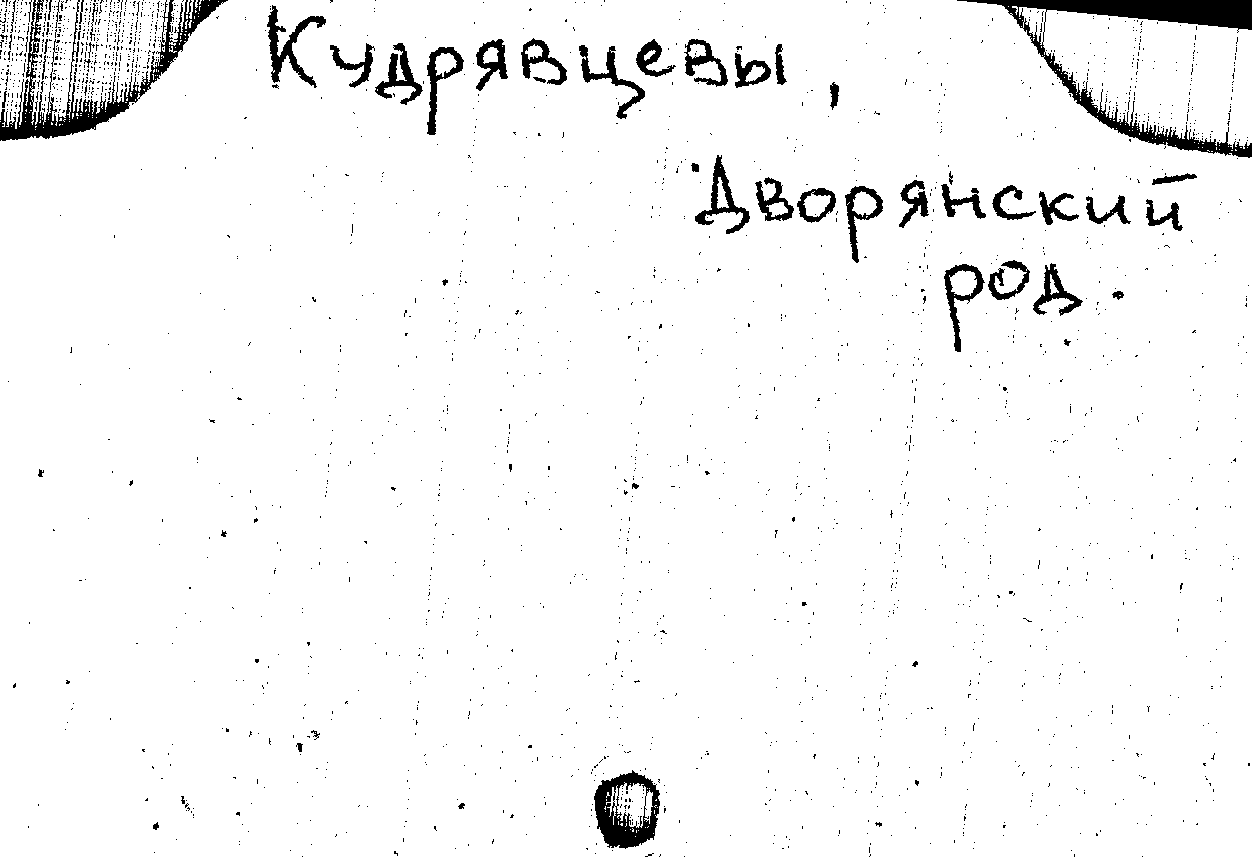 Кудрявцевы,
Дворянский
род.